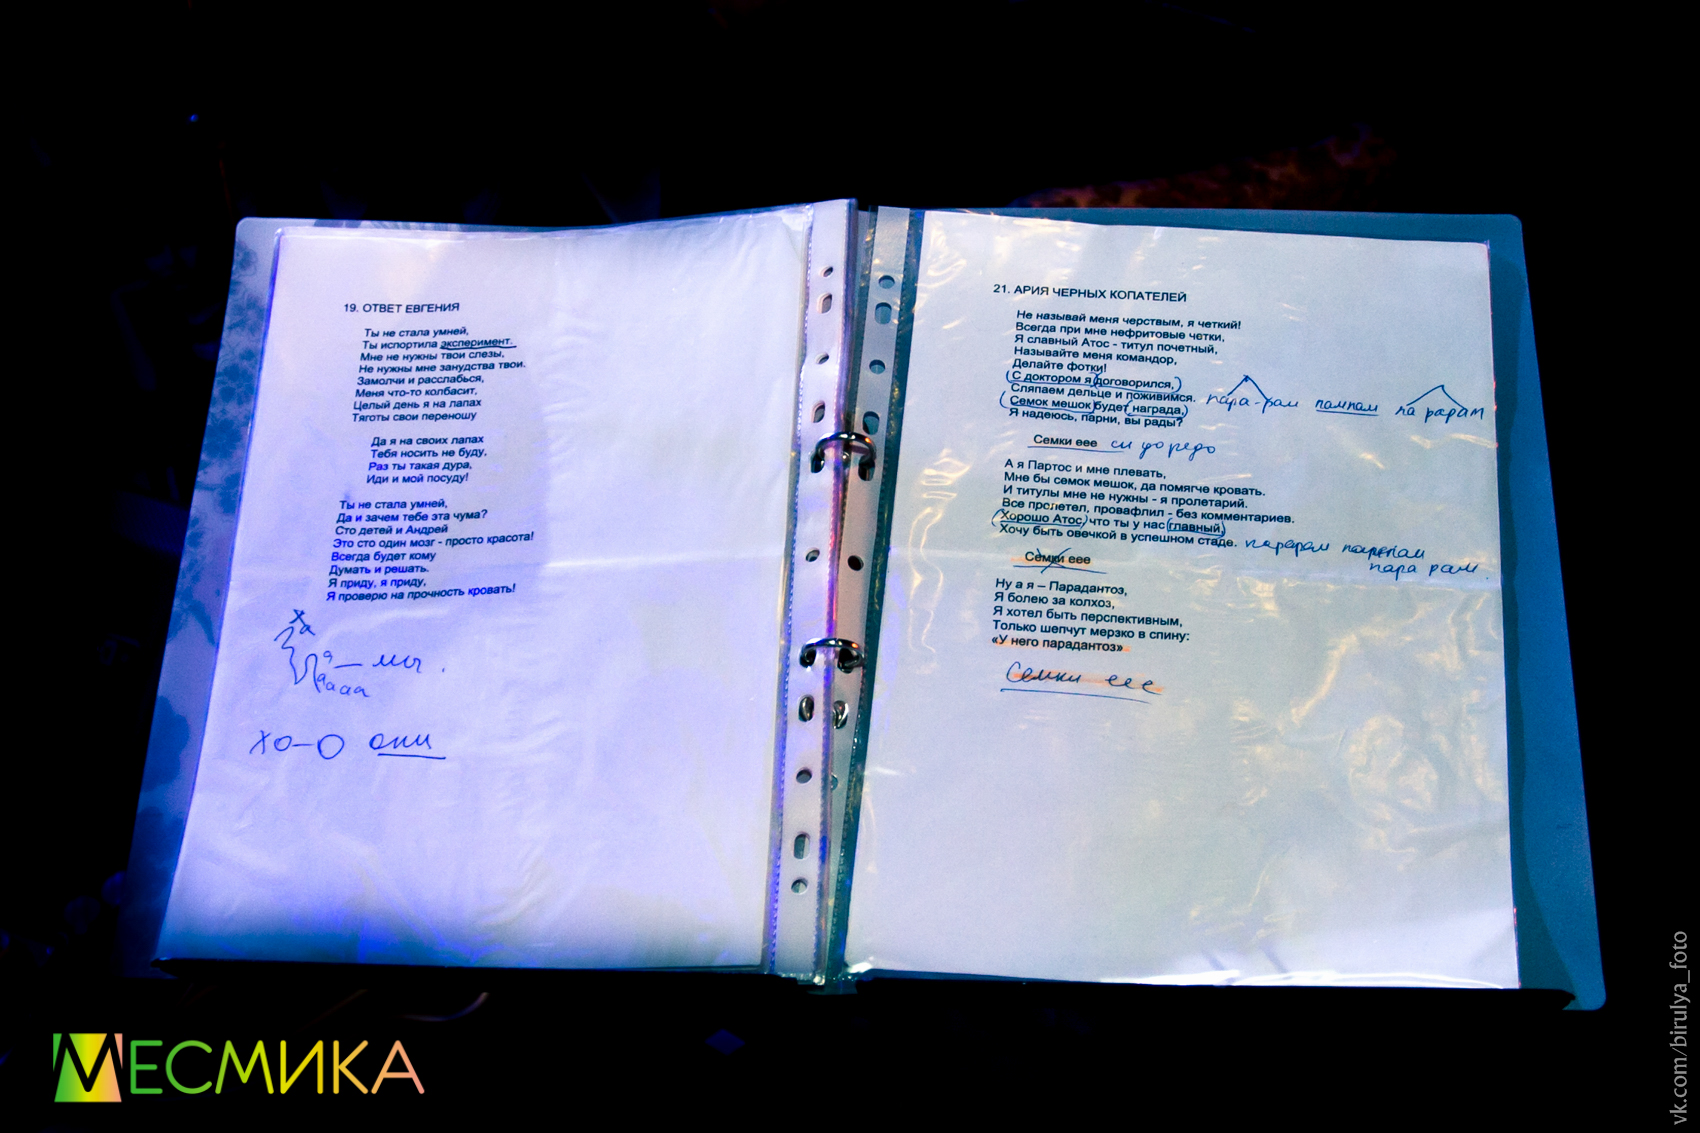 19. ОТВЕТ ЕВГЕНИЯ
Ты не стала умней,
Ты испортила эксперимент.
Мне не нужны твои слезы,
Не нужны мне занудства твои.
Замолчи и расслабься,
Меня что-то колбасит,
Целый день я на лапах
Тяготы свои переношу
Да я на своих лапах
Тебя носить не буду,
Раз ты такая дура,
Иди и мой посуду!
Ты не стала умней,
Да и зачем тебе эта чума?
Сто детей и Андрей
Это сто один мозг - просто красота!
Всегда будет кому
Думать и решать.
Я приду, я приду,
Я проверю на прочность кровать!
хо-о они
21. АРИЯ ЧЕРНЫХ КОПАТЕЛЕЙ
Не называй меня черствым, я четкий!
Всегда при мне нефритовые четки,
Я славный Атос - титул почетный,
Называйте меня командор,
Делайте фотки!
(С доктором я)(договорился,)
Сляпаем дельце и поживимся. пара-рам пампам па рарам
(Семок мешок) будет (награда,)
Я надеюсь, парни, вы рады?
Семки еее си до редо
А я Партос и мне плевать,
Мне бы семок мешок, да помягче кровать.
И титулы мне не нужны - я пролетарий.
Все пролетел, провафлил - без комментариев.
(Хорошо Атос) что ты у нас (главный,)
Хочу быть овечкой в успешном стаде. парарам
пара рам.
Семки еее
Ну а я – Парадантоз,
Я болею за колхоз,
Я хотел быть перспективным,
Только шепчут мерзко в спину:
«У него парадантоз»
Семки еее
МЕСМИКА
vk.com/birulya_foto